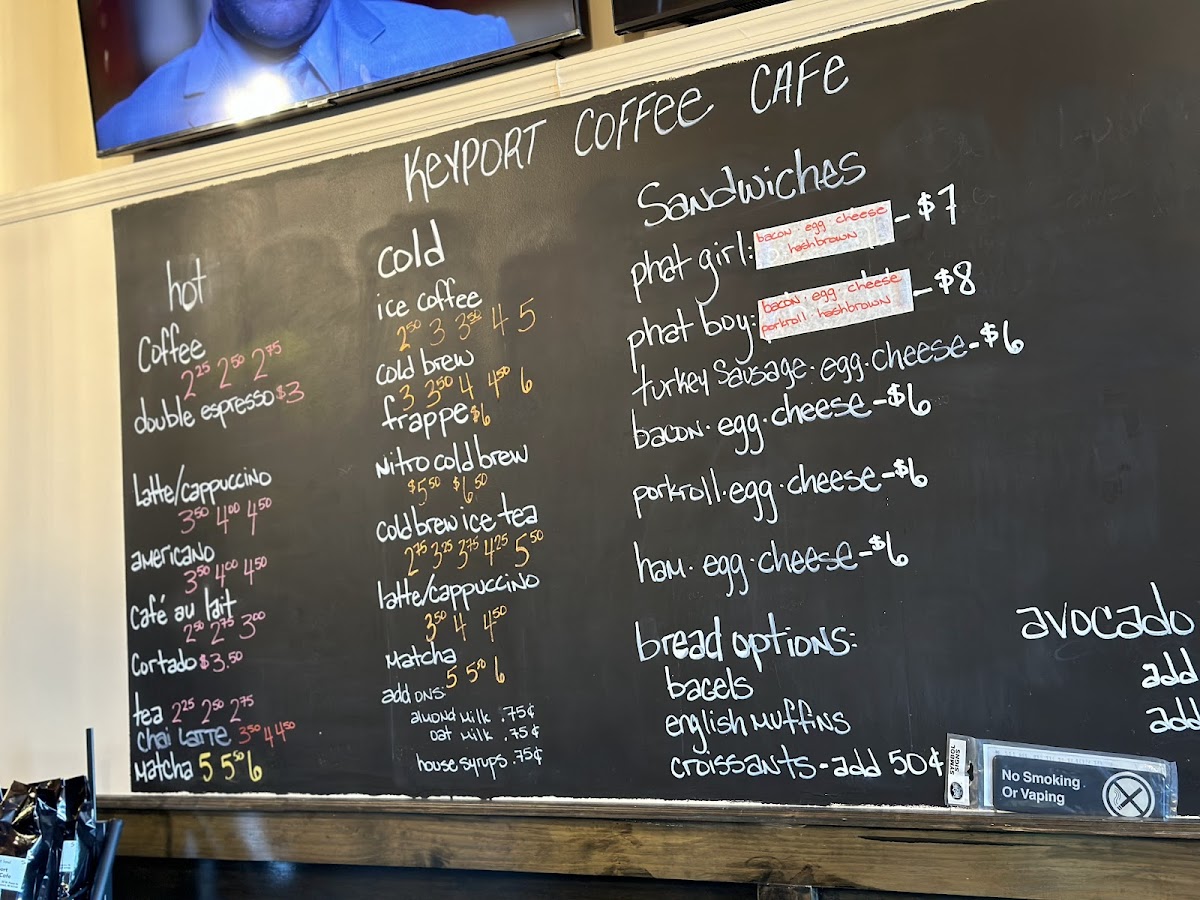 KEYPORT COFFEE CAFE
hot
Coffee
2.25 2.50 2.75
double espresso $3
Latte/cappuccino
3.50 4.00 4.50
americano
3.50 4.00 4.50
Café au lait
2.50 2.75 3.00
Cortado $3.50
tea 2.25 2.50 2.75
Chai Latte 3.50 4 4.50
Matcha 5 5.50 6
cold
ice coffee
2.50 3 3.50 4 5
cold brew
3 3.50 4 4.50 6
frappe $6
Nitro cold brew
$5.50 $6.50
cold brew ice tea
2.75 3.25 3.75 4.25 5.50
latte/cappuccino
3.50 4 4.50
Matcha
5 5.50 6
add ons:
almond milk .75¢
oat milk .75¢
house syrups .75¢
Sandwiches
phat girl: bacon · egg · cheese
hashbrown - $7
phat boy: bacon · egg · cheese
porkroll · hashbrown - $8
turkey sausage · egg · cheese - $6
bacon · egg · cheese - $6
porkroll · egg · cheese - $6
ham · egg · cheese - $6
bread options:
bagels
english muffins
croissants - add 50¢
avocado
add
add
SYMBOL SIGNS
No Smoking
Or Vaping